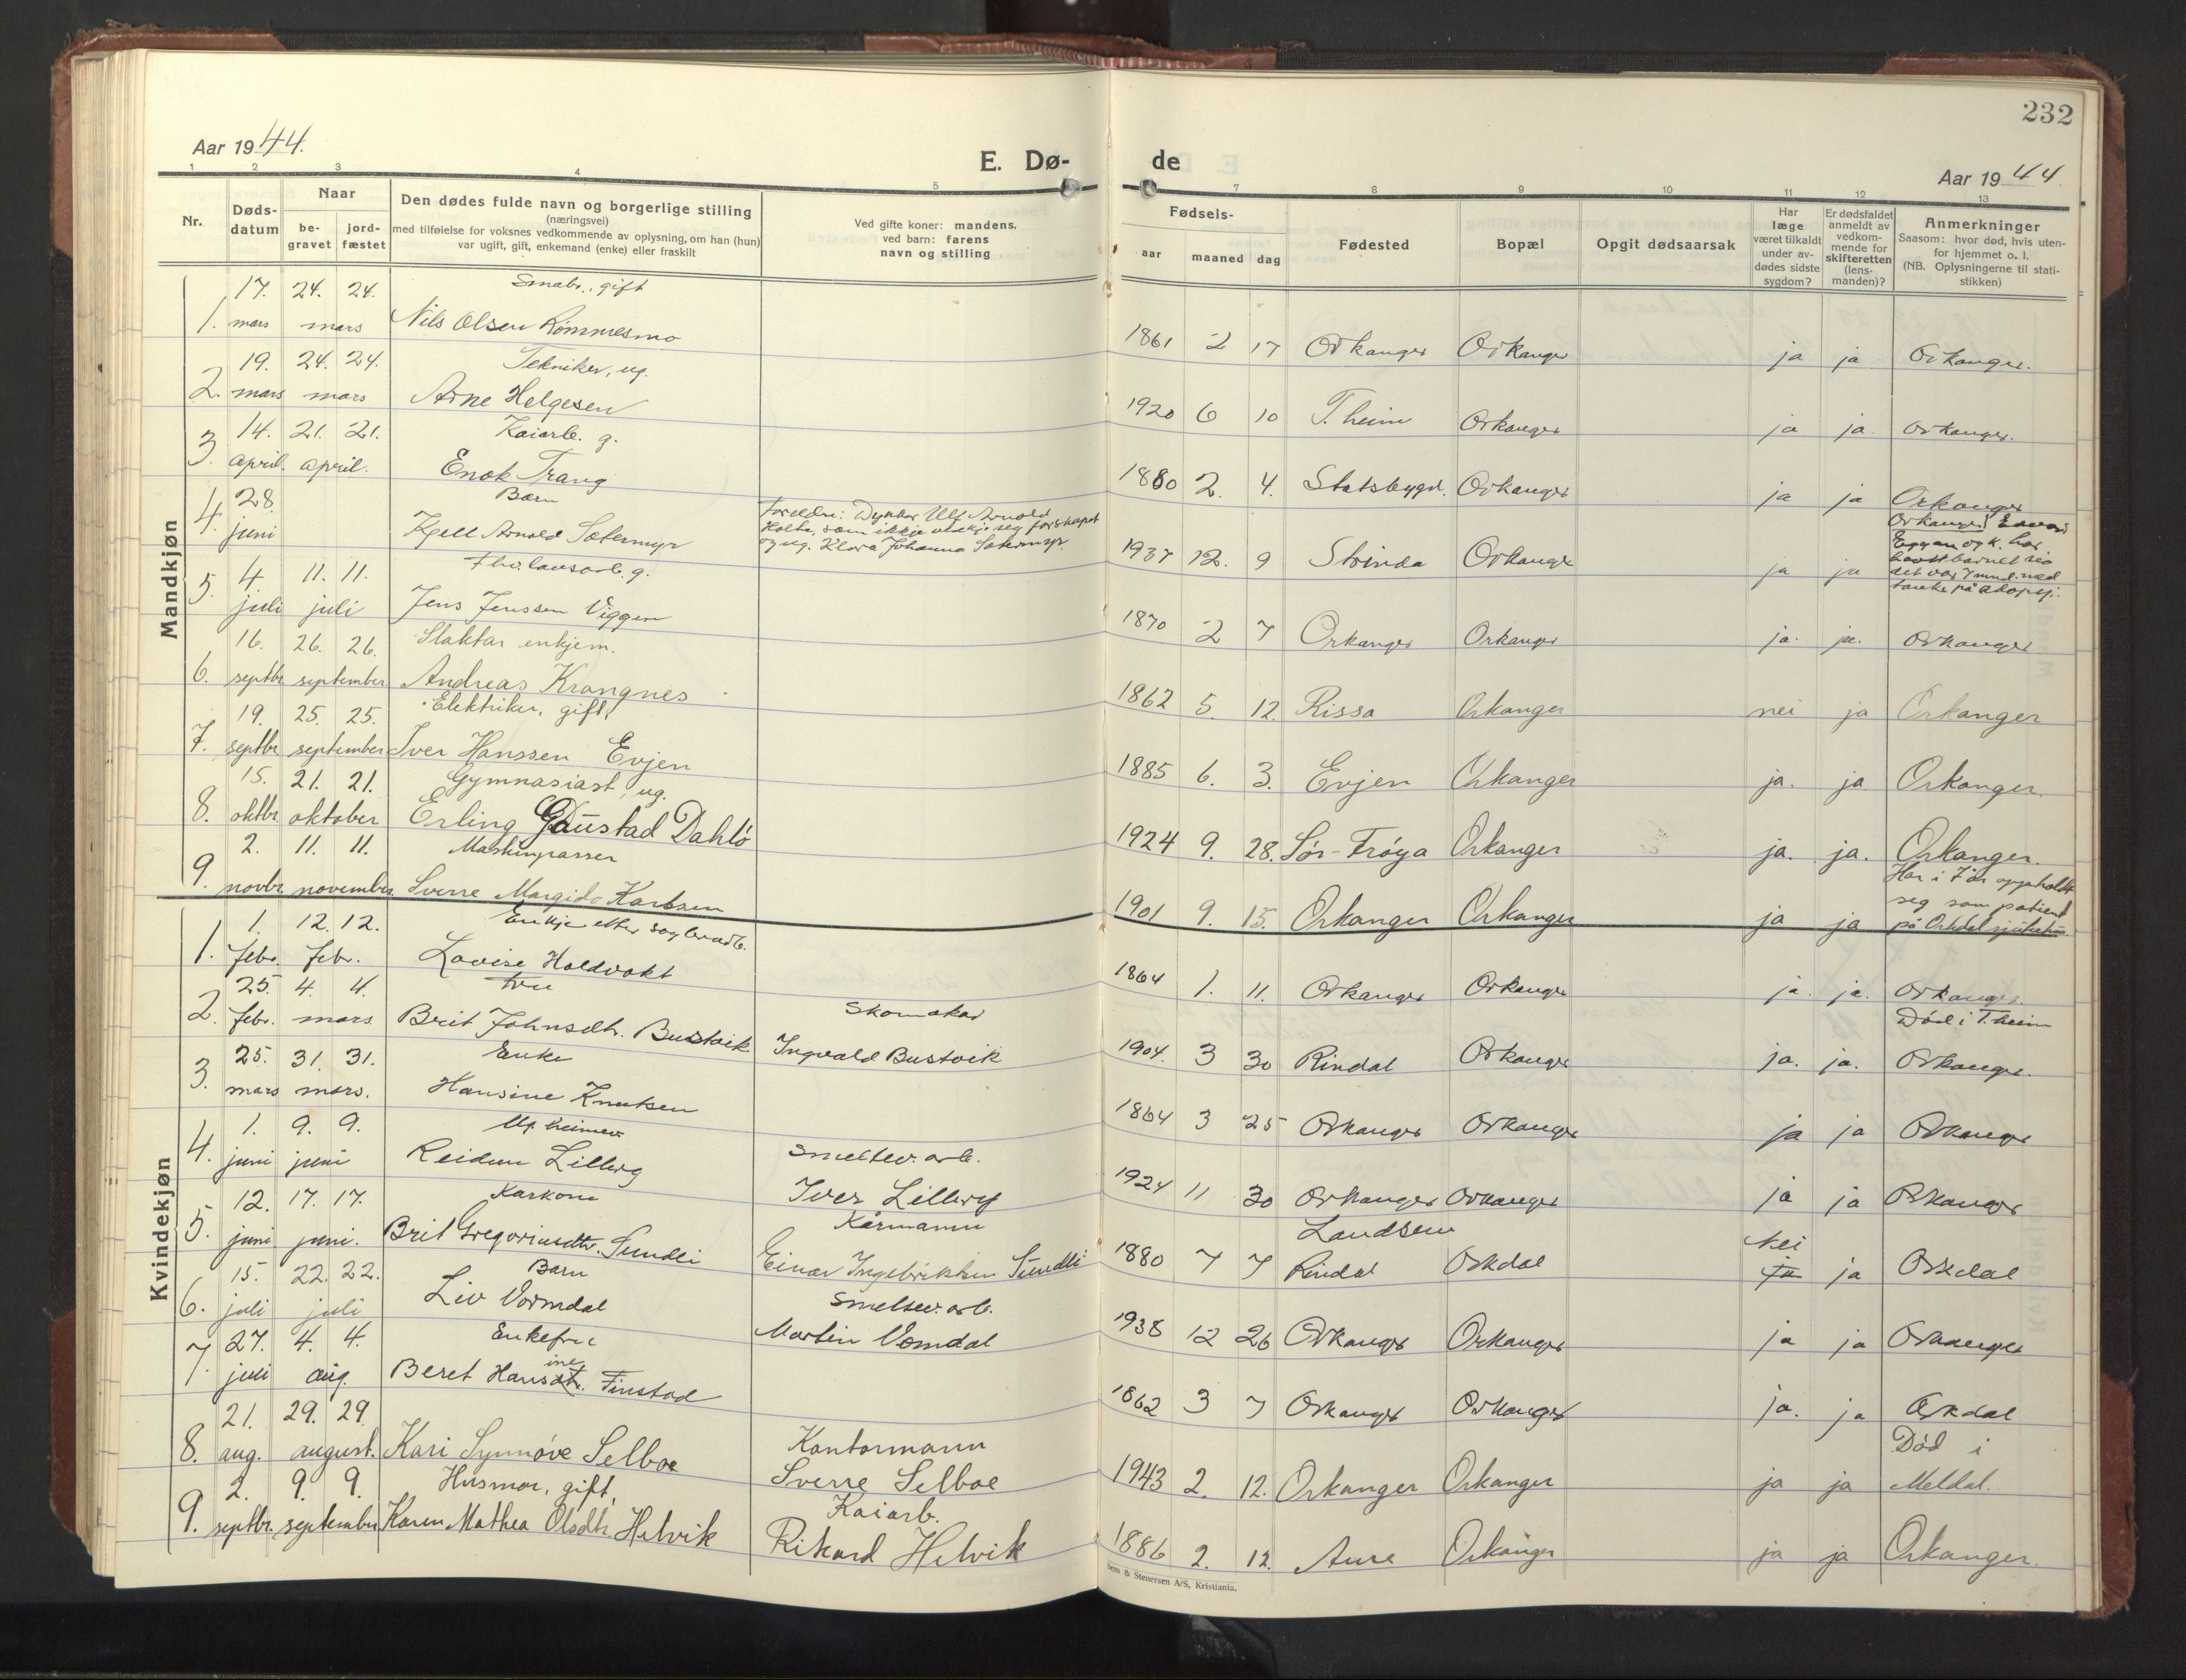 232
Aar 1944.
E. Dø-
de
Aar 1944.
1 2 3 4 5 7 8 9 10 11 12 13
Nr.
Døds-
datum
Naar
be-
gravet
jord-
fæstet
Den dødes fulde navn og borgerlige stilling
(næringsvei)
med tilføielse for voksnes vedkommende av oplysning, om han (hun)
var ugift, gift, enkemand (enke) eller fraskilt
Ved gifte koner: mandens,
ved barn: farens
navn og stilling
Fødsels-
aar maaned dag
Fødested
Bopæl
Opgit dødsaarsak
Har
læge
været tilkaldt
under av-
dødes sidste
sygdom?
Er dødsfaldet
anmeldt av
vedkom-
mende for
skifteretten
(lens-
manden)?
Anmerkninger
Saasom: hvor død, hvis uten-
for hjemmet o. l.
(NB. Oplysningerne til stati-
stikken)
Mandkjøn
17. 24. 24. Smabr., gift
1. mars mars Nils Olsen Rømmesmo 1861 2 17 Orkanger Orkanger ja ja Orkanger.
19. 24. 24. Tekniker, ug.
2. mars mars Arne Helgesen 1920 6 10 T.heim Orkanger ja ja Orkanger.
14. 21. 21. Kaiarb. g.
3. april. april. Enok Trang 1880 2. 4. Statsbygd. Orkanger ja ja Orkanger
28. Barn
4. juni Kjell Arnold Sætermyr
Foreldre: Ulf Arnold
Holte, som ikkje seg farskapet
og ug. Klara Johanna Sætermyr.
1937 12. 9 Strinda Orkanger ja ja
Orkanger.
Eggan og k. har
havt barnet sia
det var 7 mnd. med
tanke på adopsj.
4. 11. 11. g.
5. juli juli Jens Jenssen Viggen 1870 2 7 Orkanger Orkanger ja. ja. Orkanger
16. 26. 26. Slaktar enkjem.
6. septbr. september Andreas Krangnes 1862 5. 12. Rissa Orkanger nei ja Orkanger
19. 25. 25. Elektriker, gift,
7. septbr. september Iver Hanssen Evjen 1885 6. 3. Evjen Orkanger ja. ja Orkanger.
15. 21. 21. Gymnasiast, ug.
8. oktbr. oktober Erling Gaustad Dahlø 1924 9. 28. Sør-Frøya Orkanger ja. ja. Orkanger.
2. 11. 11. Maskinpasser
9. novbr. november Sverre Margido Karlsen 1901 9. 15. Orkanger Orkanger ja ja
Har i 7 år oppholdt
seg som patient
på Orkdal sjukehus.
Kvindekjøn
1. 12. 12. Enkje etter sagbruarb.
1. febr. febr. Lovise Holdvokt 1864 1. 11. Orkanger Orkanger ja. ja. Orkanger.
25. 4. 4. Fru Skomakar Død i T.heim
2. febr. mars Brit Johnsdtr. Bustvik Ingvald Bustvik 1904. 3 30 Rindal Orkanger ja. ja. Orkanger.
25. 31. 31. Enke
3. mars mars. Hansine Knutsen 1864 3 25 Orkanger Orkanger ja ja Orkanger
1. 9. 9. Ug. heimev. Smeltev. arb.
4. juni juni Reidun Lillevg Iver Lillevg 1924 11 30 Orkanger Orkanger ja ja Orkanger
12. 17. 17. Kårkone Kårmann Landsem nei
5. juni juni. Brit Gregoriusdtr. Sundli Einar Ingebriktsen Sundli 1880 7 7 Rindal Orkdal ja ja Orkdal
15. 22. 22. Barn Smeltev. arb.
6. juli juli Liv Vormdal Martin Vormdal 1938 12 26 Orkanger Orkanger ja ja Orkanger
27. 4. 4. Enkefru
ine
7. juli aug. Beret Hansdt. Finstad 1862 3 7 Orkanger Orkanger ja. ja Orkdal
21. 29. 29. Kontormann Død i
8. aug. august. Kari Synnøve Selboe Sverre Selboe 1943 2. 12. Orkanger Orkanger ja ja Meldal.
2. 9. 9. Husmor, gift, Kaiarb.
9. septbr. september Karen Mathea Olsdtr. Helvik Rikard Helvik 1886 2. 12. Aure Orkanger ja ja Orkanger.
Sem & Stenersen A/S, Kristiania.